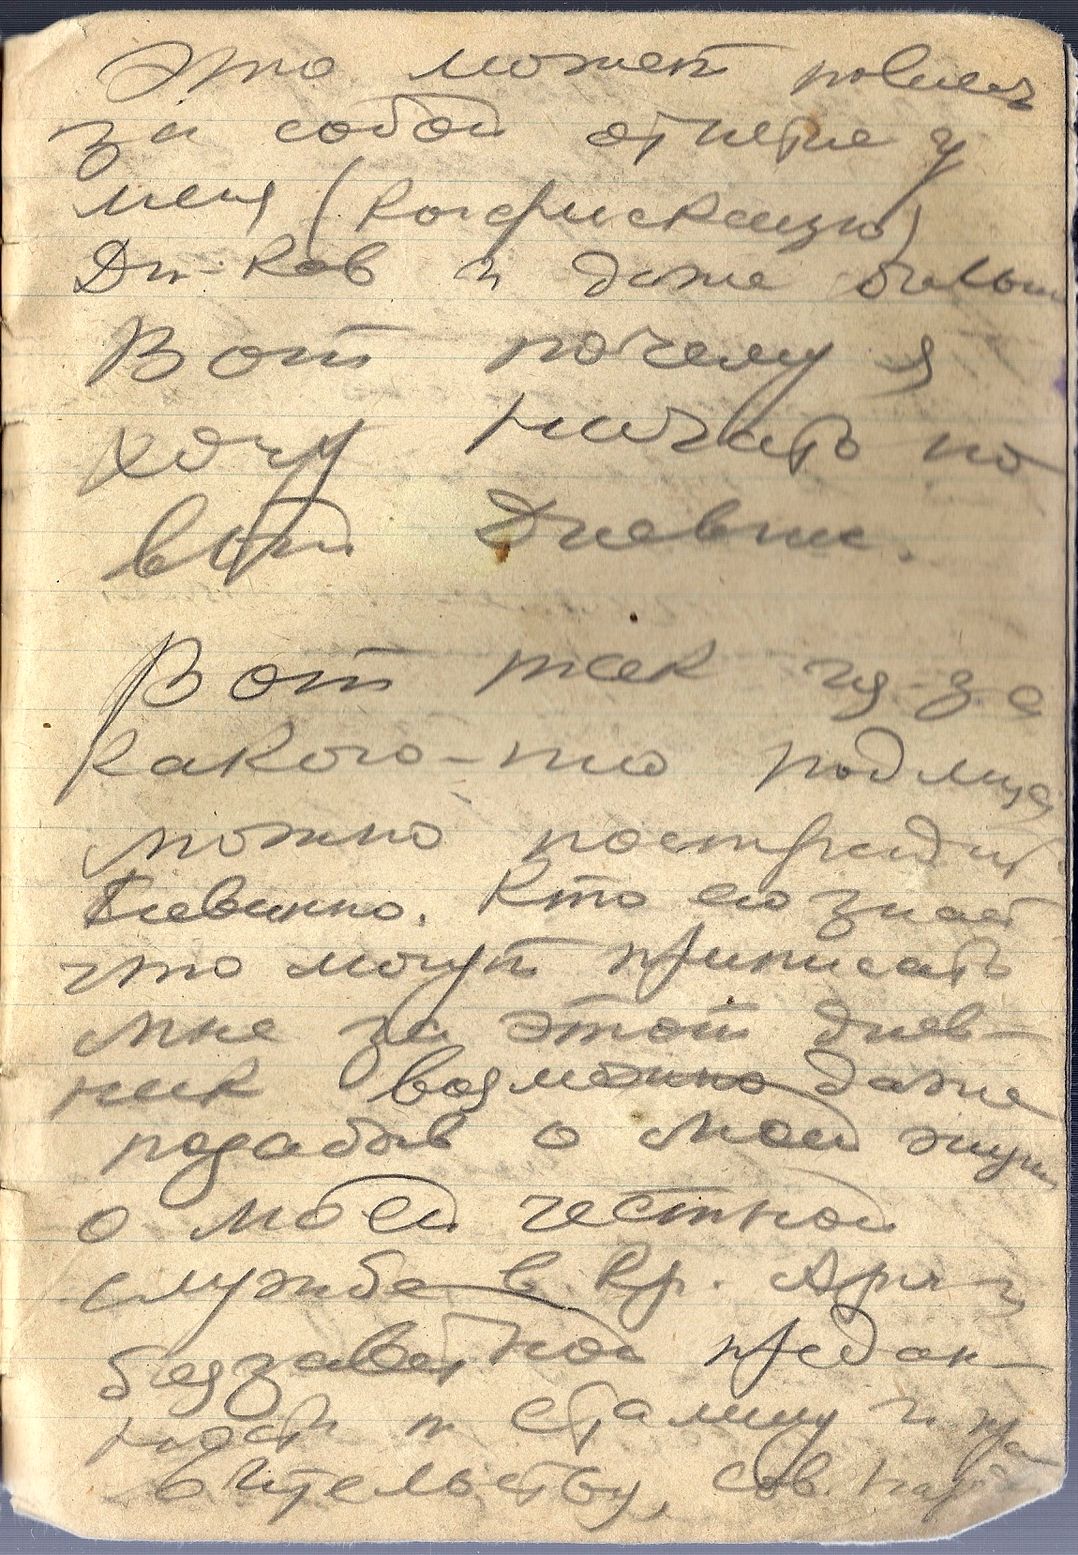 Это может повлечь
за собой отнятие у
меня (конфискацию)
Дн-ков и даже больше
Вот почему я
хочу начать но
вый Дневник.
Вот так из-за
какого-то подлеца
можно пострадать
невинно. Кто его знает
что могут приписать
мне за этот днев-
ник возможно даже
позабыв о моей жизни
о моей честной
службе в Кр. Арм и
беззаветной предан-
ности к Сталину и пра
вительству, Сов.